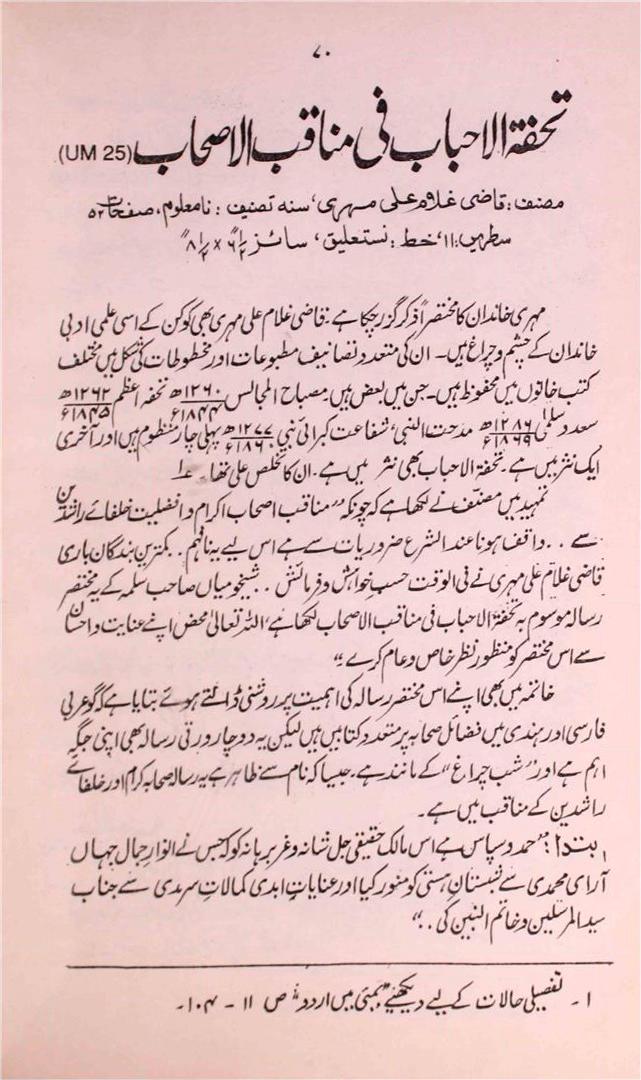 ۷۰
تحفۃ الاحباب فی مناقب الاصحاب (UM 25)
مصنف: قاضی غلام علی مہری، سنہ تصنیف: نامعلوم، صفحات ۵۲
سطریں: ۱۱، خط: نستعلیق، سائز ۶½" × ۸½"
مہری خاندان کا مختصراً ذکر گزر چکا ہے۔ قاضی غلام علی مہری بھی کوکن کے اسی علمی ادبی
خاندان کے چشم و چراغ ہیں۔ ان کی متعدد تصانیف مطبوعات اور مخطوطات کی شکل میں مختلف
کتب خانوں میں محفوظ ہیں۔ جن میں بعض ہیں مصباح المجالس ۱۲۶۰ھ/۱۸۴۴ء تحفہ اعظم ۱۲۶۲ھ/۱۸۴۵ء
سعد و سلمیٰ ۱۲۸۶ھ/۱۸۶۹ء مدحت النبی، شفاعت کبرائے نبی ۱۲۷۷ھ/۱۸۶۰ء پہلی چار منظوم ہیں اور آخری
ایک نثر میں ہے۔ تحفۃ الاحباب بھی نثر میں ہے۔ ان کا تخلص علی تھا۔ ۱؎
تمہید میں مصنف نے لکھا ہے کہ چونکہ "مناقب اصحاب اکرام و افضلیت خلفائے راشدین
سے .. واقف ہونا عند الشرع ضروریات سے ہے اس لیے یہ نافہم .. کمترین بندگان باری
قاضی غلام علی مہری نے فی الوقت حسب خواہش و فرمائش .. شیخو میاں صاحب سلمہ کے یہ مختصر
رسالہ موسوم بہ تحفۃ الاحباب فی مناقب الاصحاب لکھا ہے، اللہ تعالیٰ محض اپنے عنایت و احسان
سے اس مختصر کو منظور نظر خاص و عام کرے۔"
خاتمہ میں بھی اپنے اس مختصر رسالہ کی اہمیت پر روشنی ڈالتے ہوئے بتایا ہے کہ گو عربی
فارسی اور ہندی میں فضائل صحابہ پر متعدد کتابیں ہیں لیکن یہ دو چار ورقی رسالہ بھی اپنی جگہ
اہم ہے اور "شب چراغ" کے مانند ہے۔ جیسا کہ نام سے ظاہر ہے یہ رسالہ صحابہ کرام اور خلفائے
راشدین کے مناقب میں ہے۔
ابتدا: "حمد و سپاس ہے اس مالک حقیقی جل شانہ و عز برہانہ کو کہ جس نے انوار جمال جہاں
آرای محمدی سے شبستان ہستی کو منور کیا اور عنایات ابدی کمالات سرمدی سے جناب
سید المرسلین و خاتم النبین کی .."
۱۔ تفصیلی حالات کے لیے دیکھئے "بمبئی میں اردو" ص ۱۱ - ۱۰۴۔